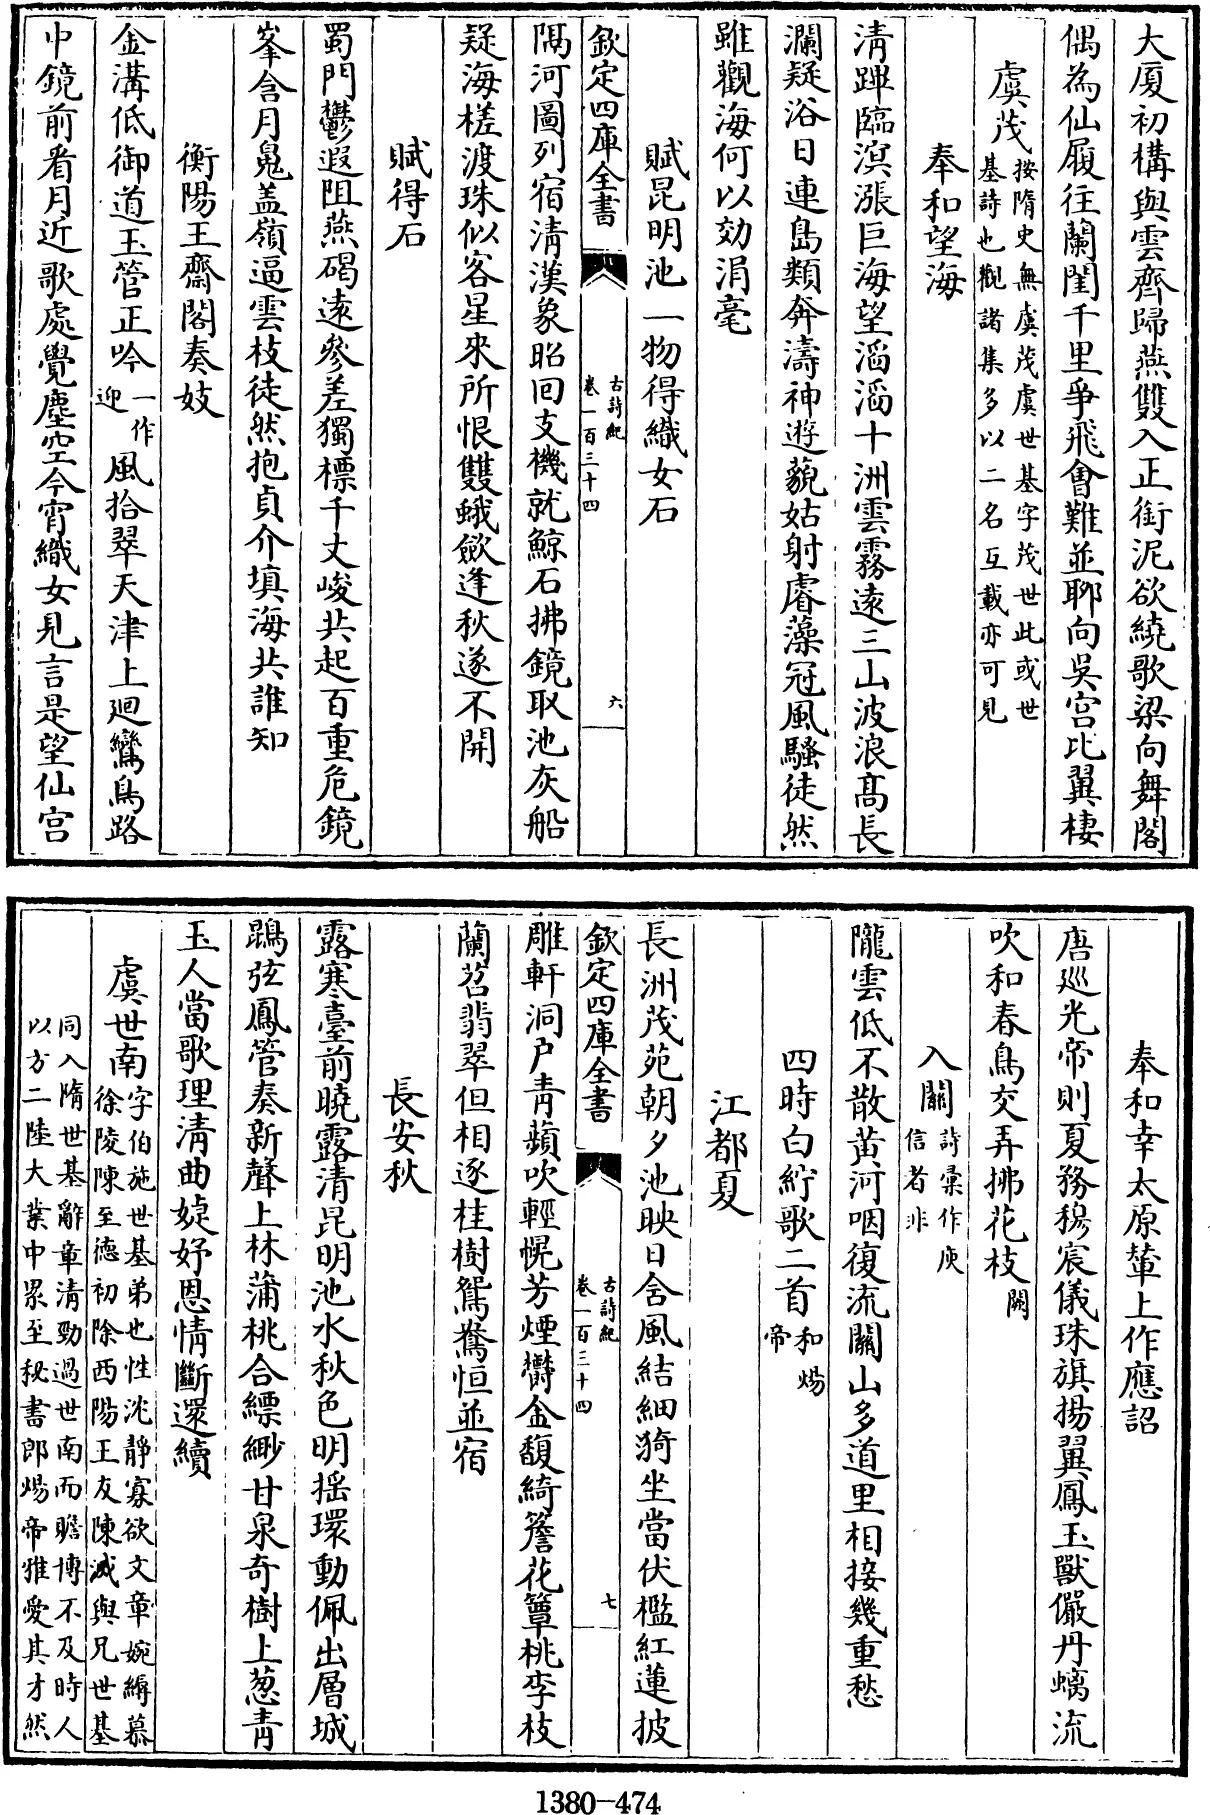 大厦初構與雲齊歸燕雙入正銜泥欲繞歌梁向舞閣
偶為仙履往蘭閨千里爭飛會難並聊向吳宮比翼棲
虞茂按隋史無虞茂虞世基字茂世此或世
基詩也觀諸集多以二名互載亦可見
奉和望海
清蹕臨溟漲巨海望滔滔十洲雲霧遠三山波浪高長
瀾疑浴日連島類奔濤神遊藐姑射睿藻冠風騷徒然
雖觀海何以効涓毫
賦昆明池一物得織女石
欽定四庫全書
古詩紀
卷一百三十四
六
隔河圖列宿清漢象昭回支機就鯨石拂鏡取池灰船
疑海槎渡珠似客星來所恨雙蛾歛逢秋遂不開
賦得石
蜀門鬱遐阻燕碣遠參差獨標千丈峻共起百重危鏡
峯含月鬼盖嶺逼雲枝徒然抱貞介填海共誰知
衡陽王齋閣奏妓
金溝低御道玉管正吟一作
迎風拾翠天津上廻鸞鳥路
中鏡前看月近歌處覺塵空今宵織女見言是望仙宮
奉和幸太原輦上作應詔
唐廵光帝則夏務穆宸儀珠旗揚翼鳳玉獸儼丹螭流
吹和春鳥交弄拂花枝闕
入關詩彙作庾
信者非
隴雲低不散黄河咽復流關山多道里相接幾重愁
四時白紵歌二首和煬
帝
江都夏
長洲茂苑朝夕池映日含風結細漪坐當伏檻紅蓮披
欽定四庫全書
古詩紀
卷一百三十四
七
雕軒洞户青蘋吹輕幌芳煙欝金馥綺簷花簟桃李枝
蘭苕翡翠但相逐桂樹鴛鴦恒並宿
長安秋
露寒臺前曉露清昆明池水秋色明搖環動佩出層城
鵾弦鳳管奏新聲上林蒲桃合縹緲甘泉奇樹上葱青
玉人當歌理清曲婕妤恩情斷還續
虞世南字伯施世基弟也性沈靜寡欲文章婉縟慕
徐陵陳至德初除西陽王友陳滅與兄世基
同入隋世基辭章清勁過世南而贍博不及時人
以方二陸大業中累至秘書郎煬帝雅愛其才然
1380-474